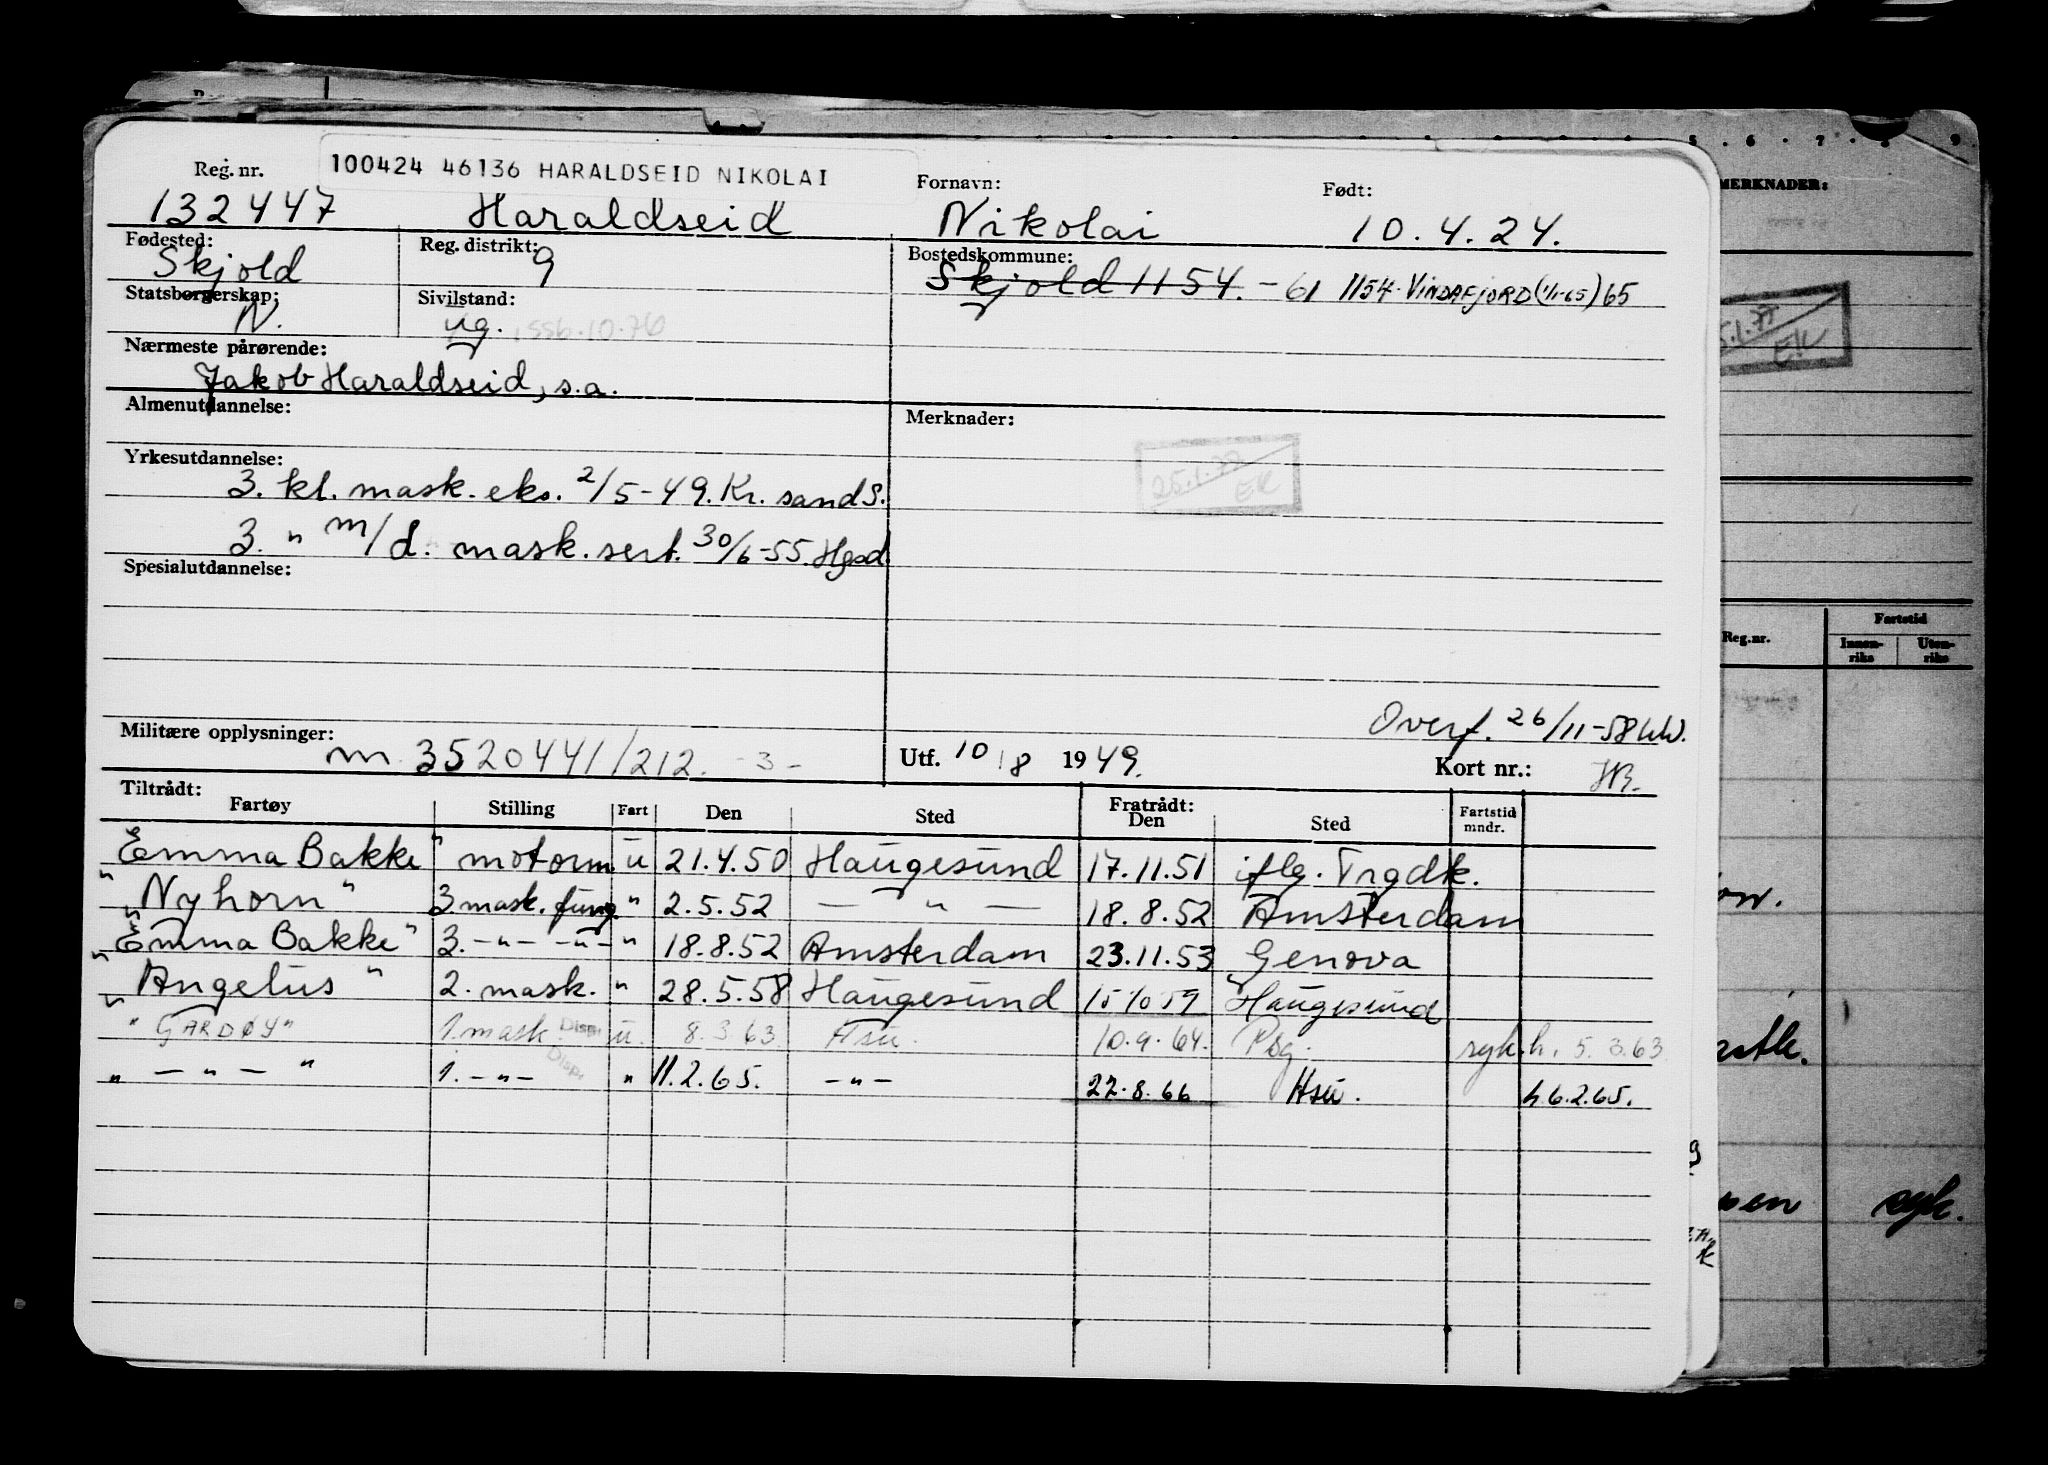 Reg. nr. 100424 46136 HARALDSEID NIKOLAI Fornavn: Født:
132447 Haraldseid Nikolai 10.4.24.
Fødested: Reg. distrikt: Bostedskommune:
Skjold 9 Skjold 1154. -61 1154 VINDAFJORD (1/1-65) 65
Statsborgerskap: Sivilstand:
N. ug.
Nærmeste pårørende:
Jakob Haraldseid, s.a.
Almenutdannelse: Merknader:
Yrkesutdannelse:
3. kl. mask. eks. 2/5-49. Kr. sand S. 25.1.77 EK
3. " m/d. mask. sert. 30/6-55. Hgsd
Spesialutdannelse:
Overf. 26/11-58
Militære opplysninger: Utf. 10/8 1949. Kort nr.:
m 3520441/212. -3-
Tiltrådt: Fratrådt:
Fartøy Stilling Fart Den Sted Den Sted Fartstid mndr.
"Emma Bakke" motorm u 21.4.50 Haugesund 17.11.51 iflg. Trgdk.
"Nyhorn" 3 mask. fung. " 2.5.52 — " — 18.8.52 Amsterdam
"Emma Bakke" 3. -"- -"- " 18.8.52 Amsterdam 23.11.53 Genova
"Angelus" 2. mask. " 28.5.58 Haugesund 15 10 59 Haugesund
"GARDØY" 1. mask. Disp. u. 8.3.63 Hsu. 10.9.64. Pbg. syk. h. 5.3.63
" — " — " 1. -"- Disp. " 11.2.65. -"- 22.8.66 Hsu. h 6.2.65.
MERKNADER:
5.1.77
EK
Reg.nr. Fartstid
Innen-riks Uten-riks
syk.